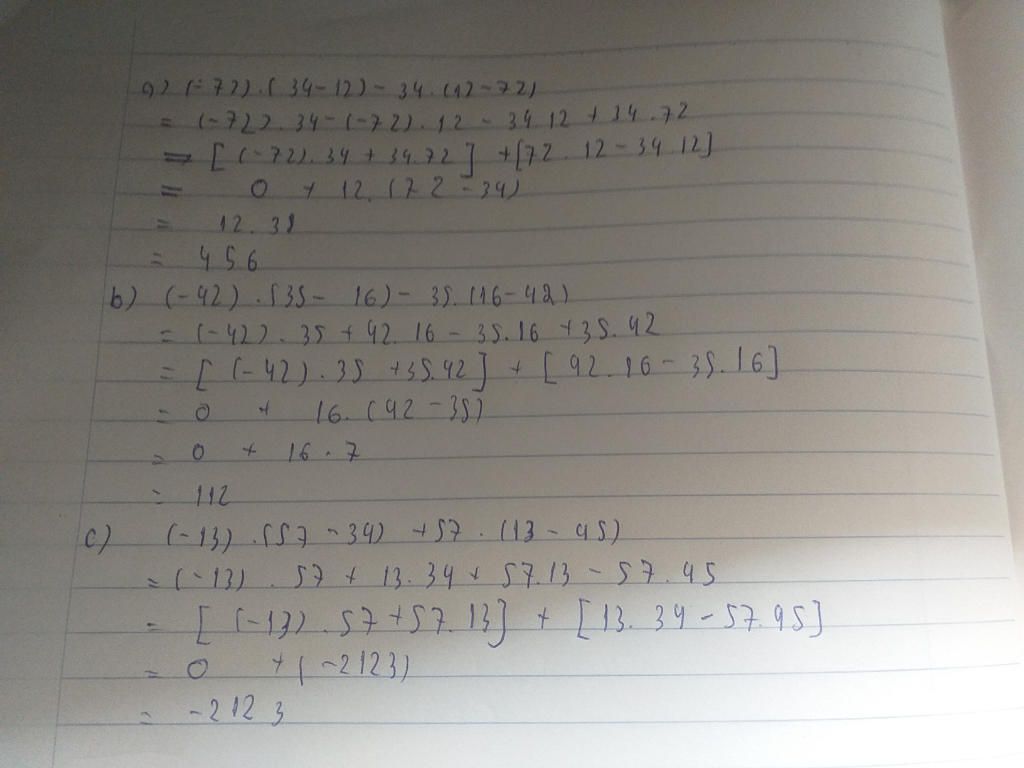 a) (-72).(34-12)-34.(12-72)
= (-72).34-(-72).12-34.12+34.72
= [(-72).34+34.72]+[72.12-34.12]
= 0 + 12.(72-34)
= 12.38
= 456
b) (-42).(35-16)-35.(16-42)
= (-42).35+42.16-35.16+35.42
= [(-42).35+35.42]+[42.16-35.16]
= 0 + 16.(42-35)
= 0 + 16.7
= 112
c) (-13).(57-34)+57.(13-45)
= (-13).57+13.34+57.13-57.45
= [(-13).57+57.13]+[13.34-57.45]
= 0 +(-2123)
= -2123